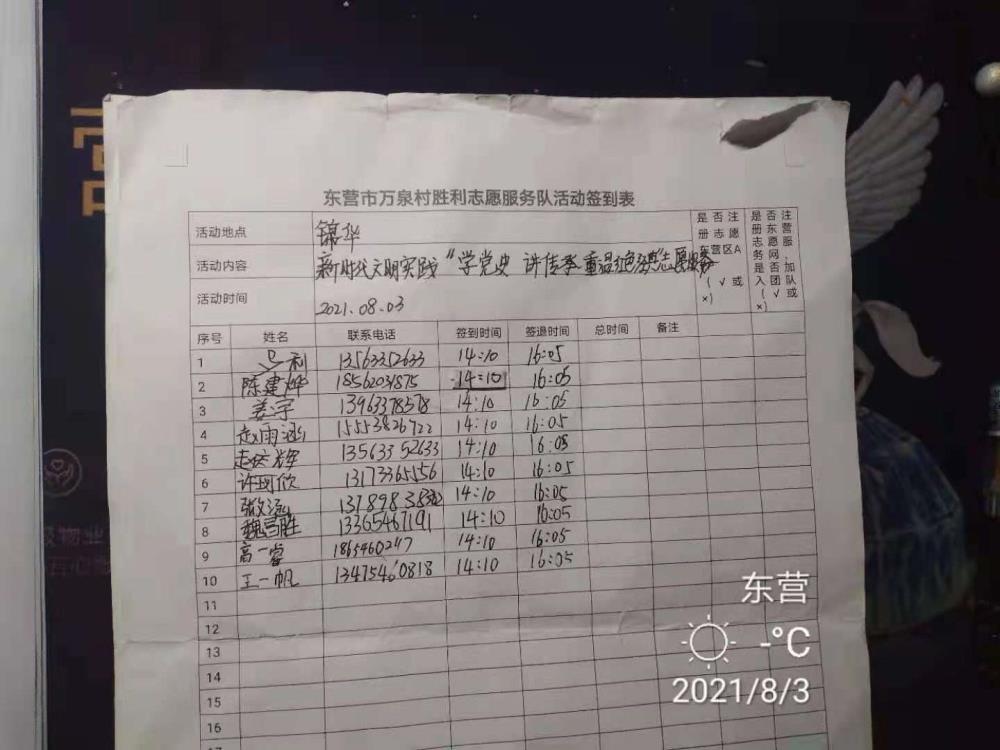 东营市万泉村胜利志愿服务队活动签到表
活动地点 锦华 是否注册志愿东营区A(√或×) 是否注册东营志愿服务网,是否加入团队(√或×)
活动内容 新时代文明实践"学党史 讲传承 重温红色经典"志愿服务
活动时间 2021.08.03
序号 姓名 联系电话 签到时间 签退时间 总时间 备注
1 13563352633 14:10 16:05
2 陈建烨 18562031875 14:10 16:05
3 姜宇 13963378578 14:10 16:05
4 赵雨涵 15553826722 14:10 16:05
5 13563352633 14:10 16:05
6 许珂欣 13173365556 14:10 16:05
7 14:10 16:05
8 魏昌胜 13365467191 14:10 16:05
9 高一睿 1865460247 14:10 16:05
10 王一帆 13475460818 14:10 16:05
11
12
13
14
15
16
东营
-°C
2021/8/3